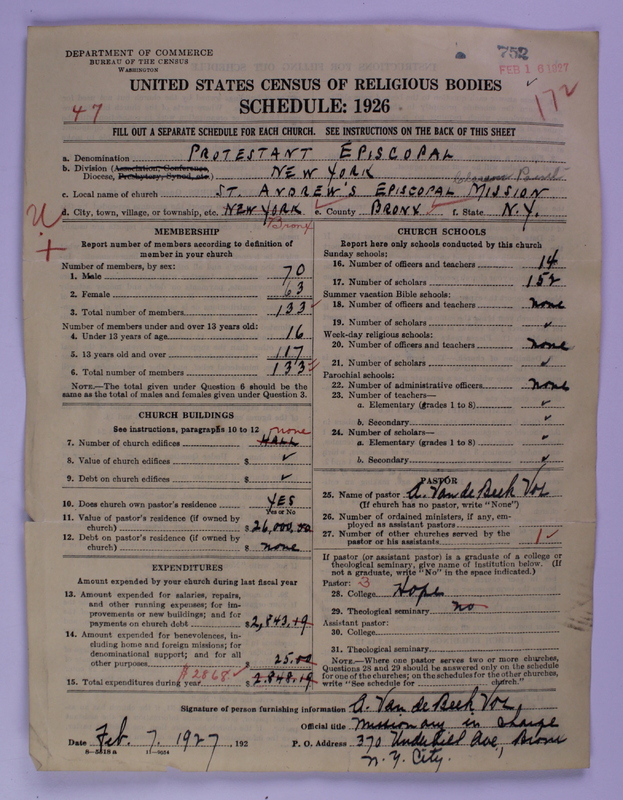 DEPARTMENT OF COMMERCE
BUREAU OF THE CENSUS
WASHINGTON
752
FEB 16 1927
UNITED STATES CENSUS OF RELIGIOUS BODIES
SCHEDULE: 1926
47
172
FILL OUT A SEPARATE SCHEDULE FOR EACH CHURCH. SEE INSTRUCTIONS ON THE BACK OF THIS SHEET
a. Denomination PROTESTANT EPISCOPAL
b. Division (Association, Conference,
Diocese, Presbytery, Synod, etc.) NEW YORK
c. Local name of church ST. ANDREW'S EPISCOPAL MISSION
d. City, town, village, or township, etc. NEW YORK e. County BRONX f. State N.Y.
Bronx
MEMBERSHIP
Report number of members according to definition of
member in your church
Number of members, by sex:
1. Male 70
2. Female 63
3. Total number of members 133
Number of members under and over 13 years old:
4. Under 13 years of age 16
5. 13 years old and over 117
6. Total number of members 133
NOTE.—The total given under Question 6 should be the
same as the total of males and females given under Question 3.
CHURCH BUILDINGS
See instructions, paragraphs 10 to 12
none
7. Number of church edifices HALL
8. Value of church edifices $ ✓
9. Debt on church edifices $ ✓
10. Does church own pastor's residence YES
Yes or No
11. Value of pastor's residence (if owned by
church) $ 26,000.00
12. Debt on pastor's residence (if owned by
church) $ none
EXPENDITURES
Amount expended by your church during last fiscal year
13. Amount expended for salaries, repairs,
and other running expenses; for im-
provements or new buildings; and for
payments on church debt $ 2,843.19
14. Amount expended for benevolences, in-
cluding home and foreign missions; for
denominational support; and for all
other purposes 25.00
$2868 ✓
15. Total expenditures during year $ 2,848.19
CHURCH SCHOOLS
Report here only schools conducted by this church
Sunday schools:
16. Number of officers and teachers 14
17. Number of scholars 152
Summer vacation Bible schools:
18. Number of officers and teachers none
19. Number of scholars ✓
Week-day religious schools:
20. Number of officers and teachers none
21. Number of scholars ✓
Parochial schools:
22. Number of administrative officers none
23. Number of teachers—
a. Elementary (grades 1 to 8) ✓
b. Secondary ✓
24. Number of scholars—
a. Elementary (grades 1 to 8) ✓
b. Secondary ✓
PASTOR
25. Name of pastor A. Van de Beek Vos
(If church has no pastor, write "None")
26. Number of ordained ministers, if any, em-
ployed as assistant pastors
27. Number of other churches served by the
pastor or his assistants 1 ✓
If pastor (or assistant pastor) is a graduate of a college or
theological seminary, give name of institution below. (If
not a graduate, write "No" in the space indicated.)
Pastor: 3
28. College Hope
29. Theological seminary no
Assistant pastor:
30. College
31. Theological seminary
NOTE.—Where one pastor serves two or more churches,
Questions 28 and 29 should be answered only on the schedule
for one of the churches; on the schedules for the other churches,
write "See schedule for church."
Signature of person furnishing information A. Van de Beek Vos,
Official title missionary in charge
Date Feb. 7, 1927, 192 P. O. Address 370 Underhill Ave, Bronx
N.Y. City.